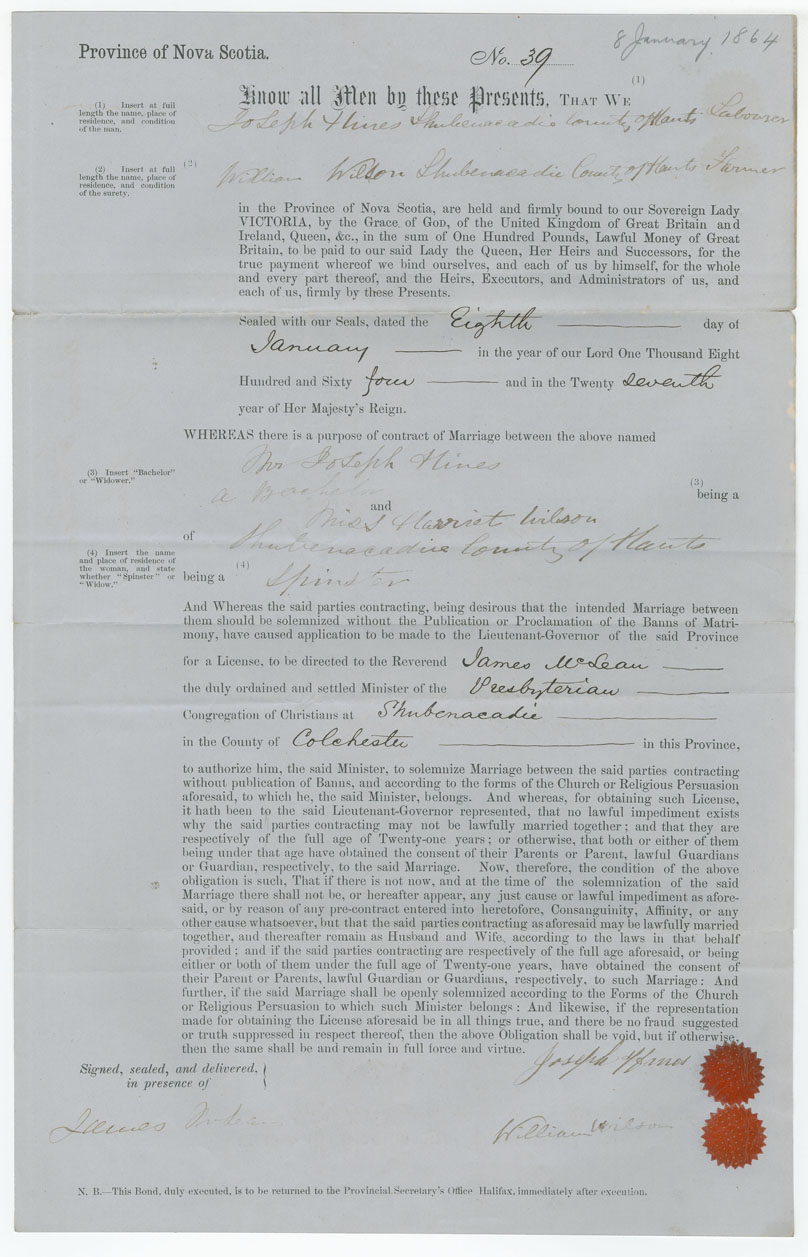 8 January 1864
Province of Nova Scotia.
No. 39
(1)
Know all Men by these Presents, THAT WE
(1) Insert at full
length the name, place of
residence, and condition
of the man.
Joseph Hines Shubenacadie County of Hants Labourer
(2) Insert at full
length the name, place of
residence, and condition
of the surety.
(2)
William Wilson Shubenacadie County of Hants Farmer
in the Province of Nova Scotia, are held and firmly bound to our Sovereign Lady
VICTORIA, by the Grace of GOD, of the United Kingdom of Great Britain and
Ireland, Queen, &c., in the sum of One Hundred Pounds, Lawful Money of Great
Britain, to be paid to our said Lady the Queen, Her Heirs and Successors, for the
true payment whereof we bind ourselves, and each of us by himself, for the whole
and every part thereof, and the Heirs, Executors, and Administrators of us, and
each of us, firmly by these Presents.
Sealed with our Seals, dated the Eighth day of
January in the year of our Lord One Thousand Eight
Hundred and Sixty four and in the Twenty seventh
year of Her Majesty's Reign.
WHEREAS there is a purpose of contract of Marriage between the above named
Mr Joseph Hines
(3) Insert "Bachelor"
or "Widower."
(3)
a Bachelor being a
and
Miss Harriet Wilson
of Shubenacadie County of Hants
(4) Insert the name
and place of residence of
the woman, and state
whether "Spinster" or
"Widow."
(4)
being a Spinster
And Whereas the said parties contracting, being desirous that the intended Marriage between
them should be solemnized without the Publication or Proclamation of the Banns of Matri-
mony, have caused application to be made to the Lieutenant-Governor of the said Province
for a License, to be directed to the Reverend James McLean
the duly ordained and settled Minister of the Presbyterian
Congregation of Christians at Shubenacadie
in the County of Colchester in this Province,
to authorize him, the said Minister, to solemnize Marriage between the said parties contracting
without publication of Banns, and according to the forms of the Church or Religious Persuasion
aforesaid, to which he, the said Minister, belongs. And whereas, for obtaining such License,
it hath been to the said Lieutenant-Governor represented, that no lawful impediment exists
why the said parties contracting may not be lawfully married together; and that they are
respectively of the full age of Twenty-one years; or otherwise, that both or either of them
being under that age have obtained the consent of their Parents or Parent, lawful Guardians
or Guardian, respectively, to the said Marriage. Now, therefore, the condition of the above
obligation is such, That if there is not now, and at the time of the solemnization of the said
Marriage there shall not be, or hereafter appear, any just cause or lawful impediment as afore-
said, or by reason of any pre-contract entered into heretofore, Consanguinity, Affinity, or any
other cause whatsoever, but that the said parties contracting as aforesaid may be lawfully married
together, and thereafter remain as Husband and Wife, according to the laws in that behalf
provided; and if the said parties contracting are respectively of the full age aforesaid, or being
either or both of them under the full age of Twenty-one years, have obtained the consent of
their Parent or Parents, lawful Guardian or Guardians, respectively, to such Marriage: And
further, if the said Marriage shall be openly solemnized according to the Forms of the Church
or Religious Persuasion to which such Minister belongs: And likewise, if the representation
made for obtaining the License aforesaid be in all things true, and there be no fraud suggested
or truth suppressed in respect thereof, then the above Obligation shall be void, but if otherwise,
then the same shall be and remain in full force and virtue.
Joseph Hines
Signed, sealed, and delivered,
in presence of
James McLean
William Wilson
N. B.—This Bond, duly executed, is to be returned to the Provincial Secretary's Office Halifax, immediately after execution.